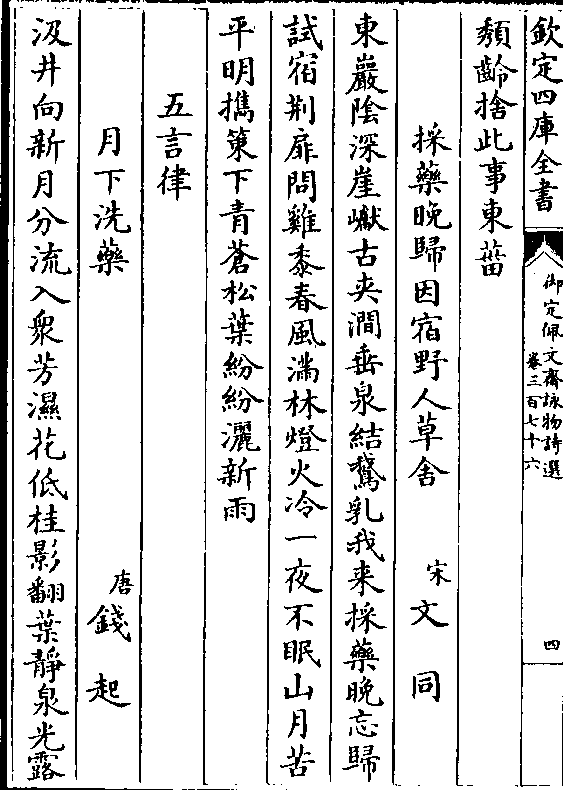 欽定四庫全書
御定佩文齋詠物詩選
卷三百七十六
四
頽齡捨此事東菑
採藥晚歸因宿野人草舍 宋 文同
東巖陰深崖巘古夾澗垂泉結鵞乳我来採藥晚忘歸
試宿荆扉問雞黍春風滿林燈火冷一夜不眠山月苦
平明攜策下青蒼松葉紛紛灑新雨
五言律
月下洗藥 唐 錢起
汲井向新月分流入衆芳濕花低桂影翻葉靜泉光露